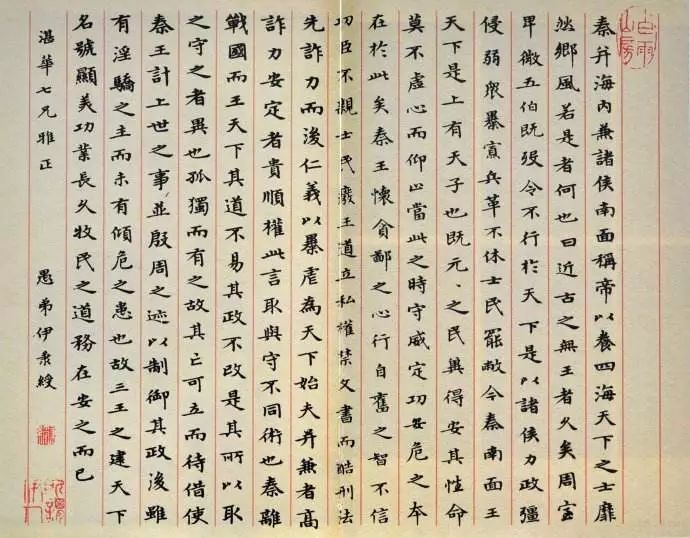 秦并海內兼諸侯南面稱帝以養四海天下之士靡
然鄉風若是者何也曰近古之無王者久矣周室
卑微五伯既歿令不行於天下是以諸侯力政彊
侵弱眾暴寡兵革不休士民罷敝今秦南面王
天下是上有天子也既元〻之民冀得安其性命
莫不虛心而仰上當此之時守威定功安危之本
在於此矣秦王懷貪鄙之心行自奮之智不信
功臣不親士民廢王道立私權禁文書而酷刑法
先詐力而後仁義以暴虐為天下始夫并兼者高
詐力安定者貴順權此言取與守不同術也秦離
戰國而王天下其道不易其政不改是其所以取
之守之者異也孤獨而有之故其亡可立而待借使
秦王計上世之事並殷周之迹以制御其政後雖
有淫驕之主而未有傾危之患也故三王之建天下
名號顯美功業長久牧民之道務在安之而已
湛華七兄雅正
愚弟伊秉綬